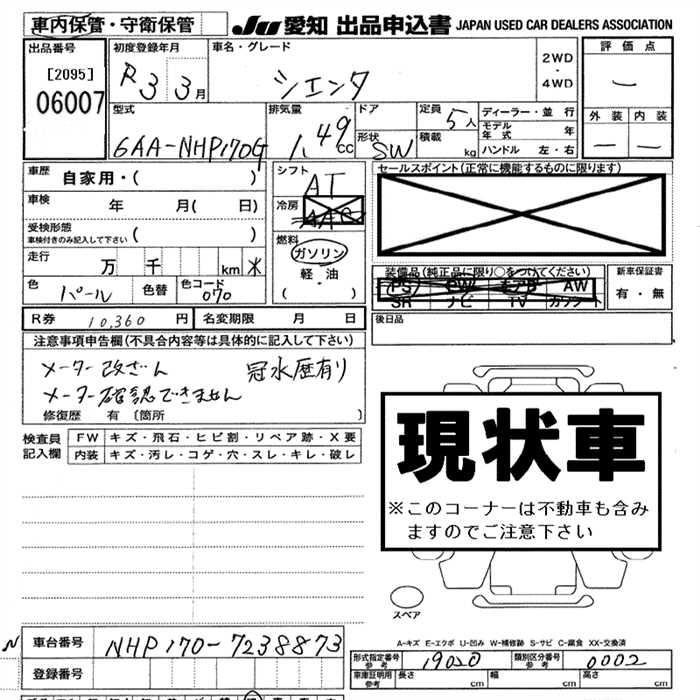 車内保管・守衛保管
JU 愛知 出品申込書 JAPAN USED CAR DEALERS ASSOCIATION
出品番号 [2095] 06007
初度登録年月 R3 3月
車名・グレード シエンタ
2WD・4WD
評価点 ー
型式 6AA-NHP170G
排気量 1.49cc
ドア 形状 SW
定員 5人 積載 kg
ディーラー・並行
モデル年式 年
ハンドル 左・右
外装 内装
ー ー
車歴 自家用・( )
車検 年 月( 日)
受検形態 車検付きのみ記入して下さい ( )
走行 万 千 km
色 パール 色替 色コード 070
シフト AT
冷房 AAC
燃料 ガソリン 軽・油 ( )
セールスポイント(正常に機能するものに限ります)
装備品(純正品に限り○をつけてください)
PS PW エアB AW
SR ナビ TV カワシート
新車保証書 有・無
R券 10,360 円 名変期限 月 日
後日品
注意事項申告欄(不具合内容等は具体的に記入して下さい)
メーター改ざん 冠水歴有り
メーター確認できません
修復歴 有 〔箇所
検査員記入欄
FW キズ・飛石・ヒビ割・リペア跡・X要
内装 キズ・汚レ・コゲ・穴・スレ・キレ・破レ
現状車
※このコーナーは不動車も含み
ますのでご注意下さい
スペア
A-キズ E-エクボ U-凹み W-補修跡 S-サビ C-腐食 XX-交換済
N 車台番号 NHP170-7238873
登録番号
形式指定番号 参考 19020 類別区分番号 参考 0002
車庫証明用 参考 長さ cm 幅 cm 高さ cm